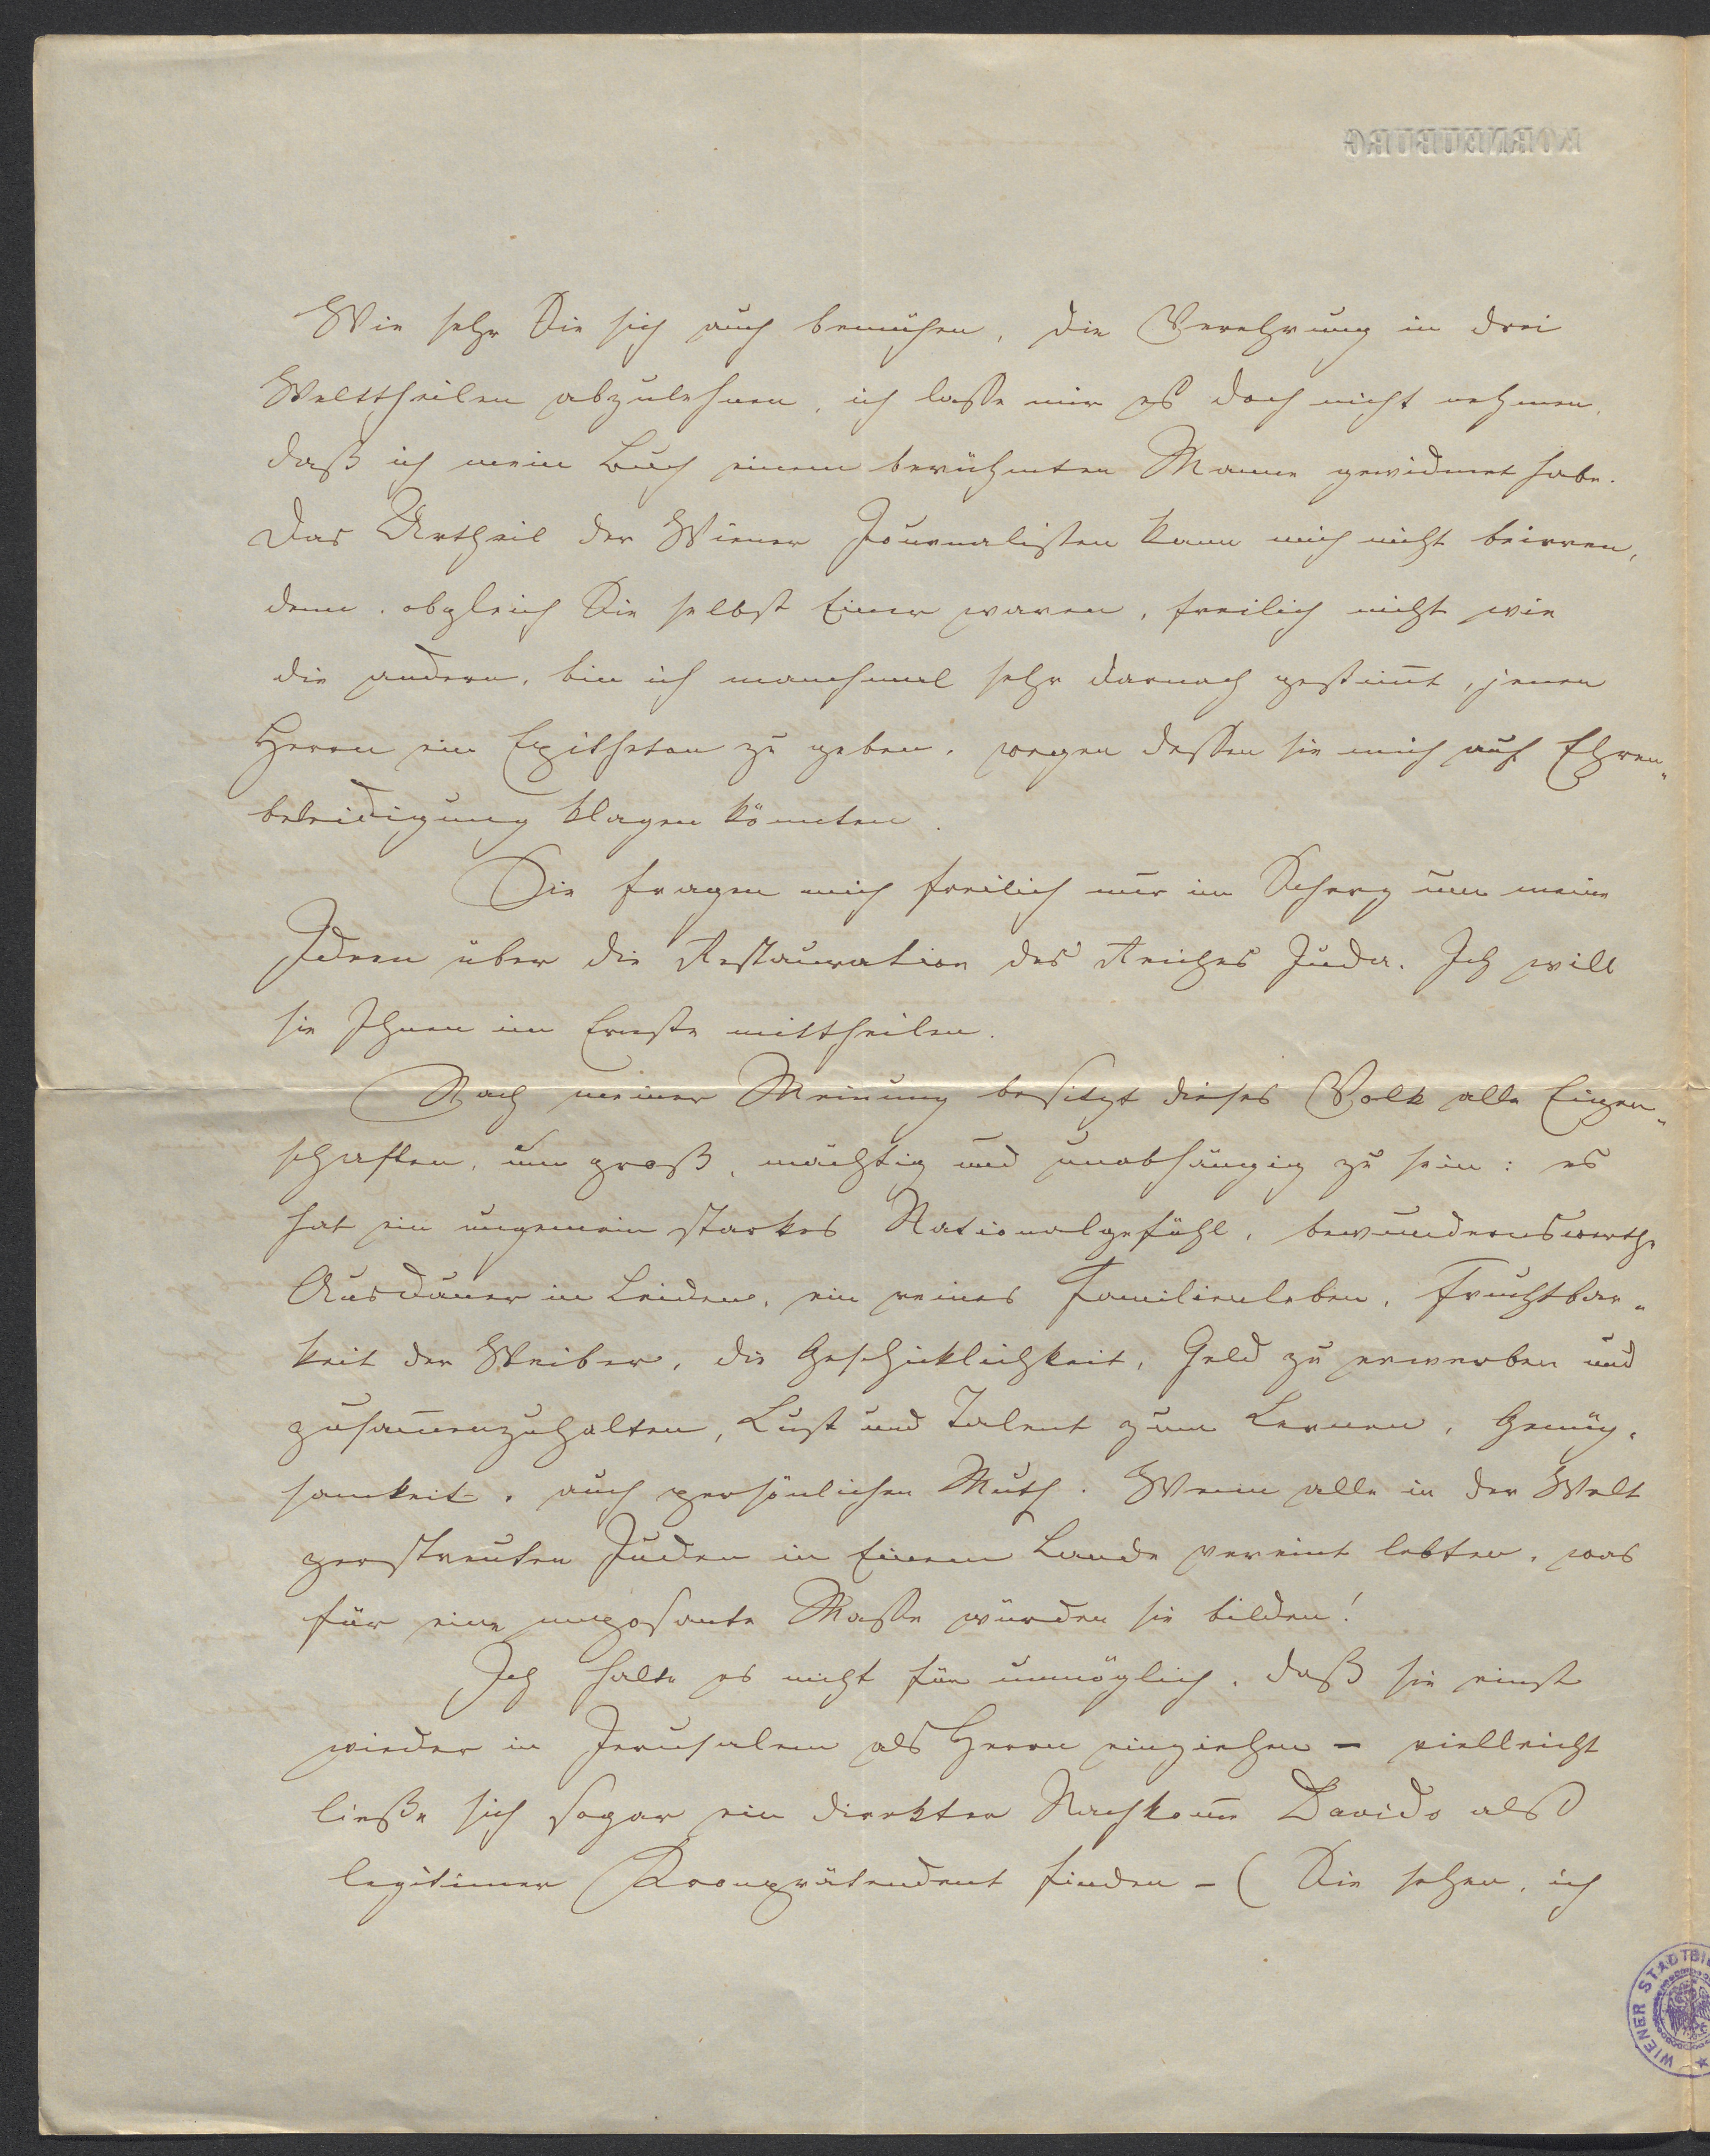 KORNEUBURG
Wie sehr Sie sich auch bemühen, die Verehrung in drei
Welttheilen abzulehnen, ich lasse mir es doch nicht nehmen,
daß ich mein Buch einem berühmten Manne gewidmet habe.
Das Urtheil der Wiener Journalisten kann mich nicht beirren,
denn, obgleich Sie selbst Einer waren, freilich nicht wie
die andern, bin ich manchmal sehr darnach gestim̅t, jenen
Herrn ein Epitheton zu geben, wegen dessen sie mich auf Ehren„
beleidigung klagen könnten.
Sie fragen mich freilich nur im Scherz um meine
Ideen über die Restauration des Reiches Juda. Ich will
sie Ihnen im Ernste mittheilen.
Nach meiner Meinung besitzt dieses Volk alle Eigen„
schaften, um groß, mächtig und unabhängig zu sein: es
hat ein ungemein starkes Nationalgefühl, bewundernswerthe
Ausdauer in Leiden, ein reines Familienleben, Fruchtbar„
keit der Weiber, die Geschicklichkeit, Geld zu erwerben und
zusam̅enzuhalten, Lust und Talent zum Lernen, Genüg„
samkeit, auch persönlichen Muth. Wenn alle in der Welt
zerstreuten Juden in Einem Lande vereint lebten, was
für eine imposante Masse würden sie bilden!
Ich halte es nicht für unmöglich, daß sie einst
wieder in Jerusalem als Herrn einziehen – vielleicht
ließe sich sogar ein direkter Nachkom̅e Davids als
legitimer Kronprätendent finden – (Sie sehen, ich
WIENER STADTBI